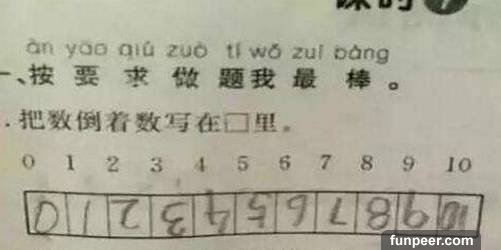 课时
àn yāo qiú zuò tí wǒ zuì bàng
一、按要求做题我最棒。
. 把数倒着数写在□里。
0 1 2 3 4 5 6 7 8 9 10
0 1 2 3 4 5 6 7 8 9 10
funpeer.com